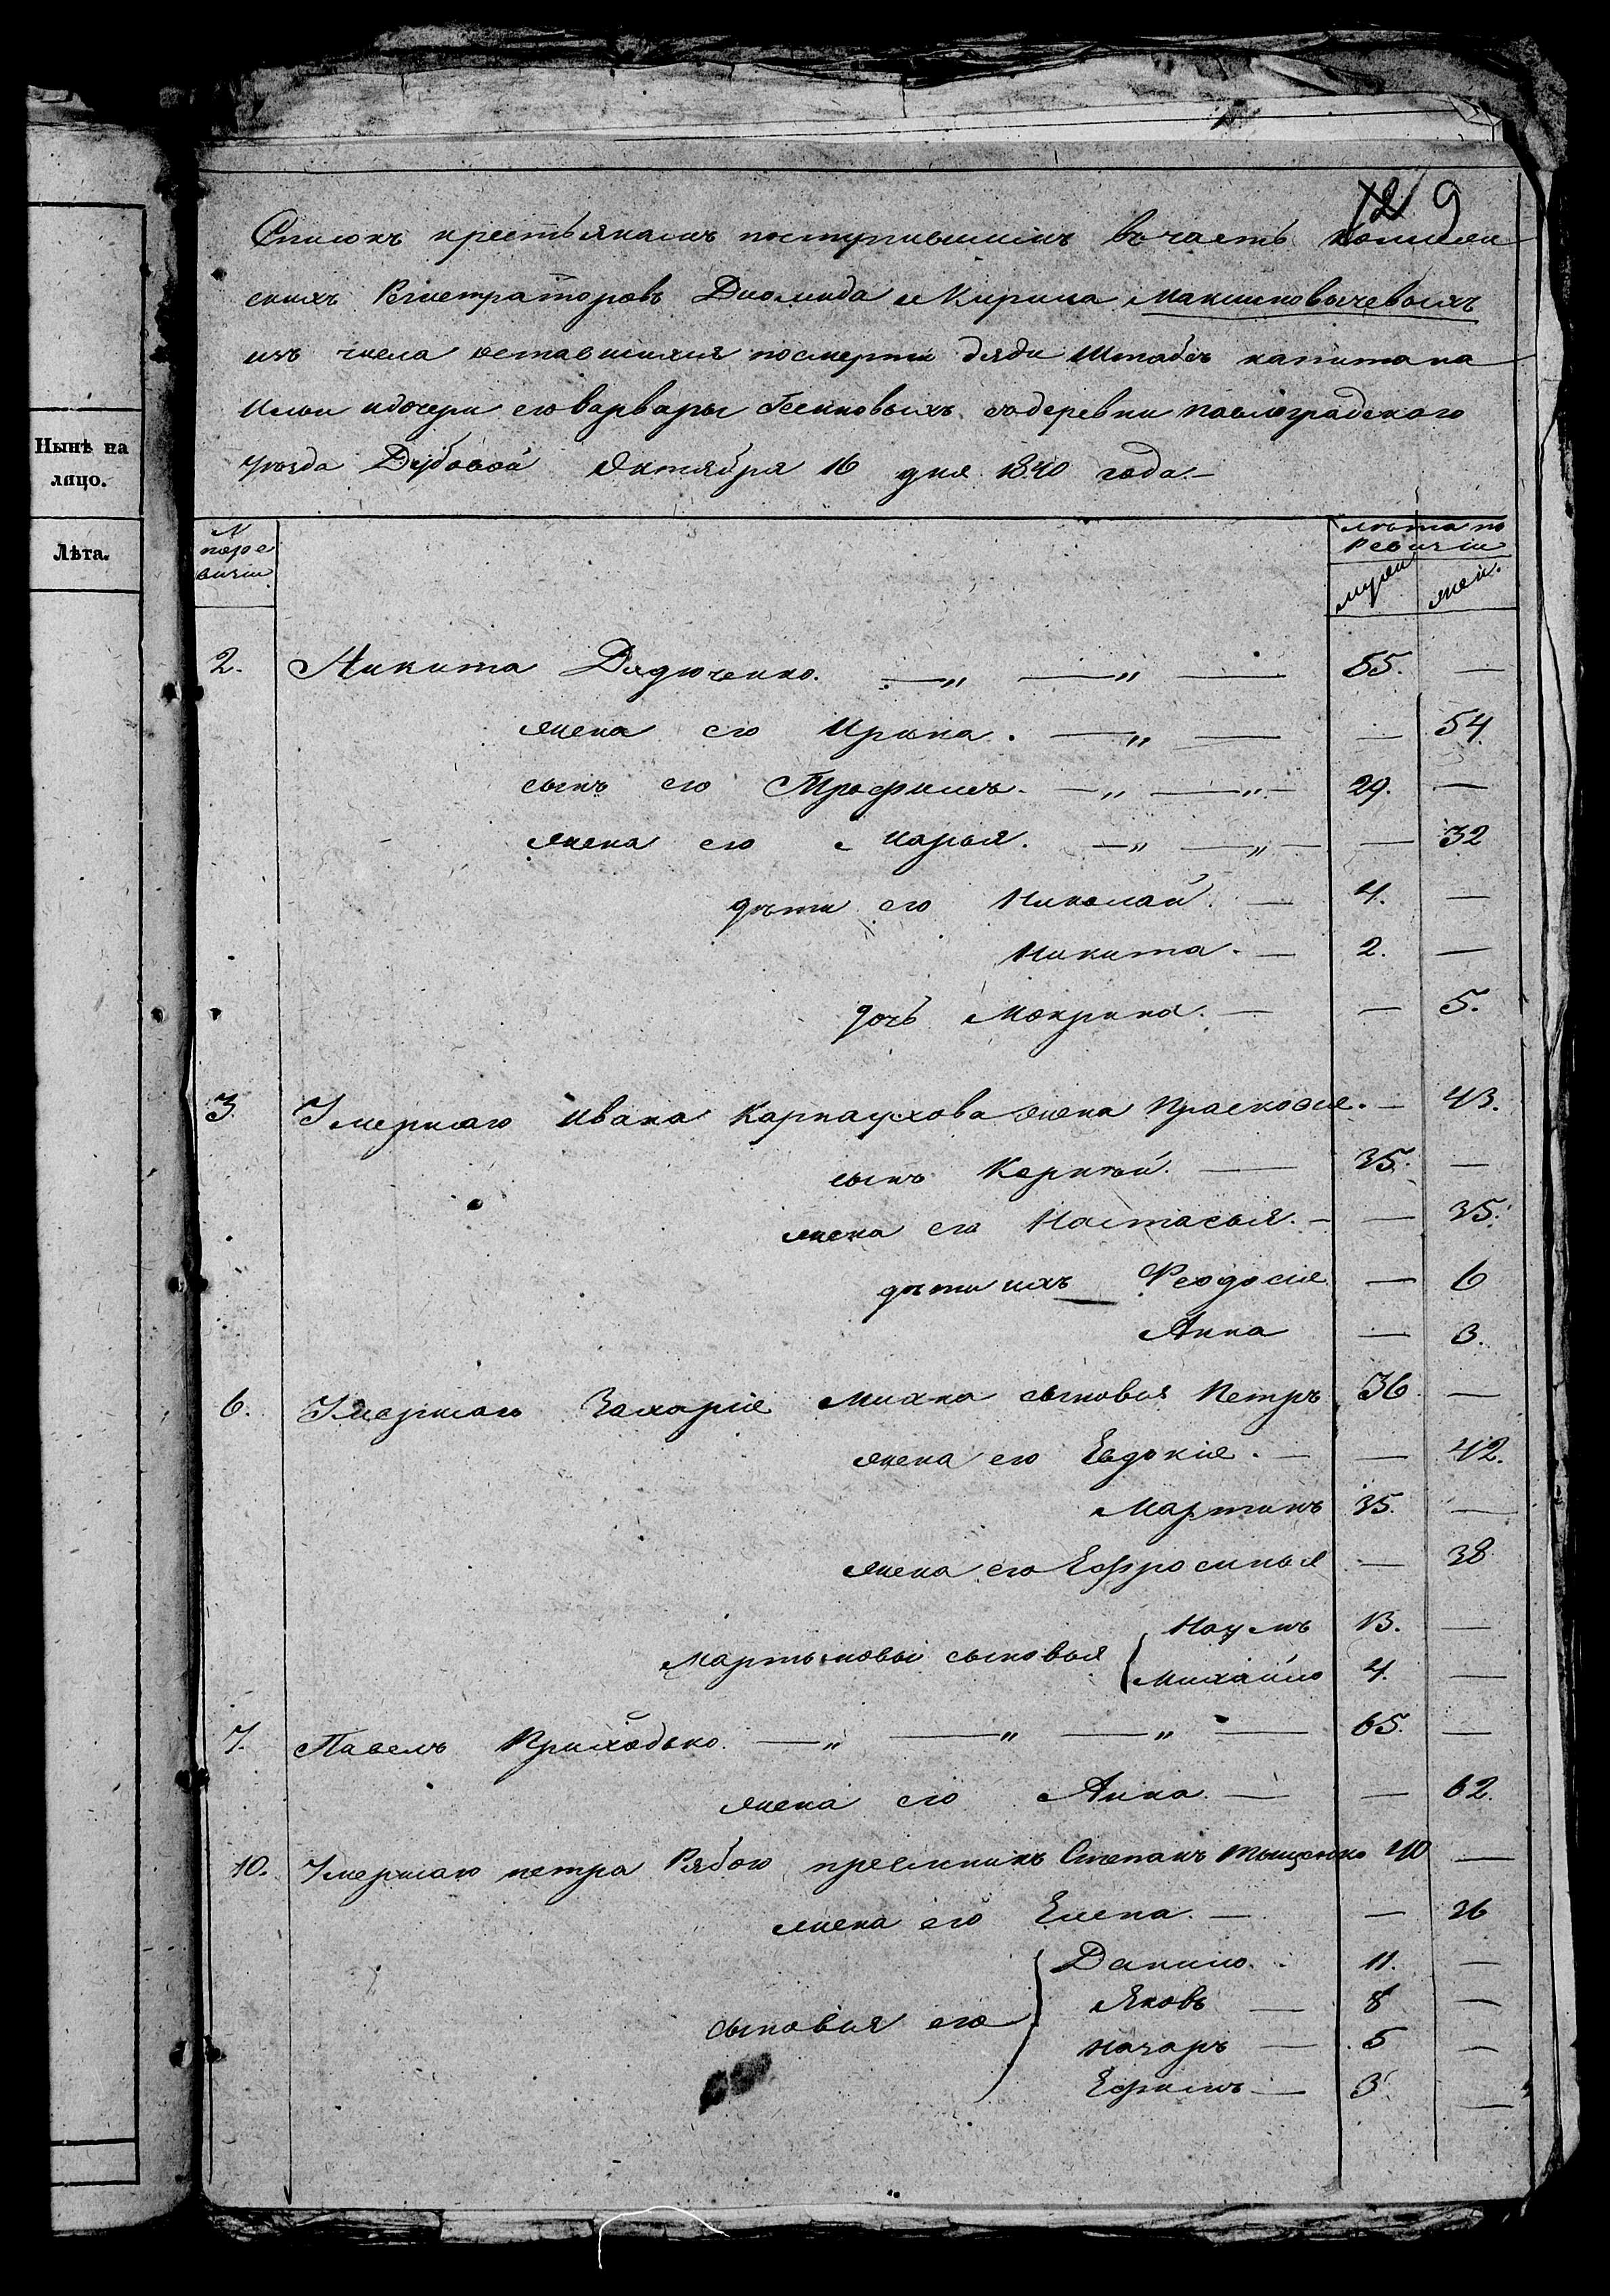 Нынѣ на
лицо.
Лѣта.
12 9
Списокъ крестьянамъ поступившимъ въ часть коллеж
скихъ Регистраторовъ Диомида и Кирила Максимовичевыхъ
изъ числа оставшихся посмерти дяди Штабсъ капитана
Ильи идочери его Варвары съдеревни павлоградского
уѣзда Дубовой Октября 16 дня 1840 года.—
№ поре визіи
лѣта по Ревизіи
муж. жен.
2. Никита Дядюченко. —„ —„ — 55. —
жена его Ирина. —„ — — 54.
сынъ его Трофимъ. —„ —„— 29. —
жена его Марья. —„ —„— — 32
дѣти его Николай. — 4. —
Никита. — 2. —
дочь Мокрина. — — 5.
3. Умершаго Ивана Карпаухова жена Прасковія. — 43.
сынъ — 35. —
жена его Настасья. — — 35.
дѣти ихъ Феодосія — 6
Анна — 3.
6. Умершаго Захарія Михна сыновья Петръ 36. —
жена его Евдокія. — — 42.
Мартинъ 35. —
жена его Ефросинья — 38
Мартыновы сыновья { Наумъ 13. —
Михайло 4. —
7. Павелъ Приходько. —„ —„ —„ — 65. —
жена его Анна. — — 62.
10. Умершаго петра Рябого преемникъ Степанъ Тыщенко 40 —
жена его Елена. — — 36
сыновья его { Данило. 11. —
Яковъ — 8 —
Назаръ — 5 —
Ефимъ — 3. —